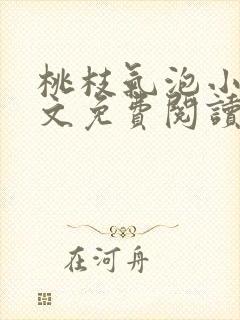 桃枝氣泡小
文免費閱讀
在河舟